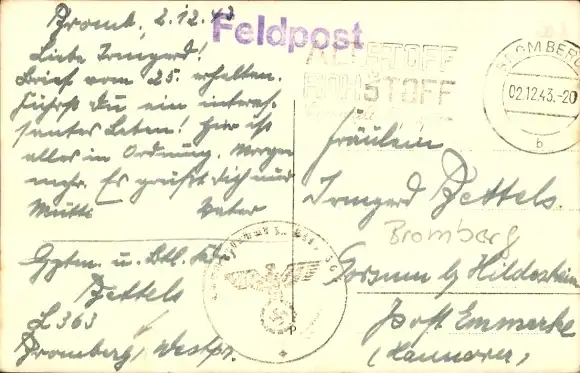 Bromb., 2.12.43
Liebe Irmgard!
Brief vom 25. erhalten.
Führst Du ein interes-
santes Leben! Hier ist
alles in Ordnung. Morgen
mehr. Es grüßt Dich und
Mutti Vater
Hptm. u. Btl. Kdr.
Bettels
L 363
Bromberg, Westpr.
Feldpost
ALTSTOFF
ROHSTOFF
BROMBERG
02.12.43.-20
b
Fräulein
Irmgard Bettels
Bromberg
Sorsum b/ Hildesheim
Post Emmerke
(Hannover)